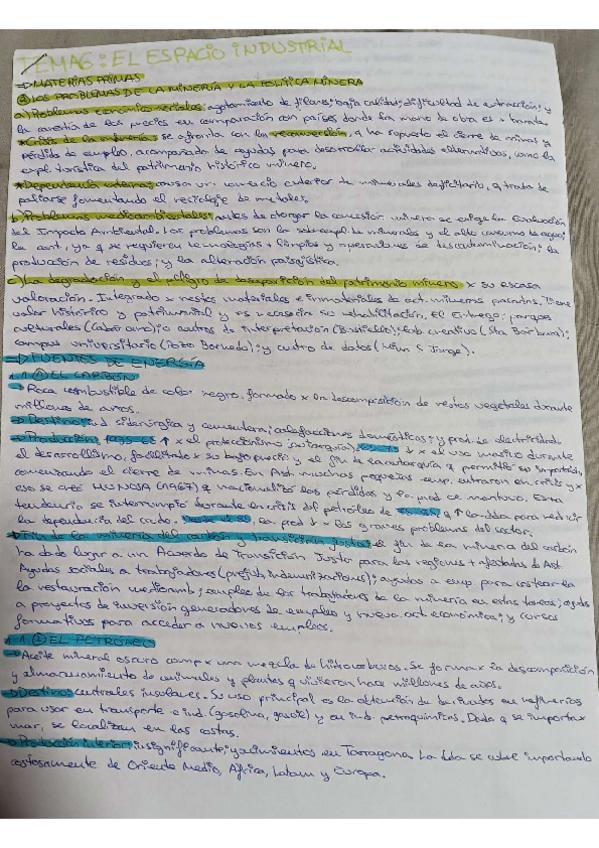 TEMA 6: EL ESPACIO INDUSTRIAL
→ MATERIAS PRIMAS
② LOS PROBLEMAS DE LA MINERÍA Y LA POLÍTICA MINERA
a) Problemas económico-sociales: agotamiento de filones; baja calidad; dificultad de extracción; y
la carestía de los precios en comparación con países donde la mano de obra es + barata.
*Crisis de la minería: se afronta con la reconversión, q ha supuesto el cierre de minas y
pérdida de empleo, acompañada de ayudas para desarrollar actividades alternativas, como la
expl. turística del patrimonio histórico minero.
*Dependencia externa: causa un comercio exterior de minerales deficitario, q trata de
paliarse fomentando el reciclaje de metales.
b) Problemas medioambientales: antes de otorgar la concesión minera se exige la Evaluación
del Impacto Ambiental. Los problemas son la sobreexpl. de minerales y el alto consumo de agua;
la cont, ya q se requieren tecnologías + limpias y operaciones de descontaminación; la
producción de residuos; y la alteración paisajística.
c) La degradación y el peligro de desaparición del patrimonio minero x su escasa
valoración. Integrado x restos materiales e inmateriales de act. mineras pasadas. Tiene
valor histórico y patrimonial y es necesaria su rehabilitación, El Entrego; parques
culturales (Cabárceno); o centros de interpretación (Bustiello); club creativo (Sta Bárbara);
campus universitario (Pozo Barredo); y centro de datos
→ FUENTES DE ENERGÍA
1.1 ① EL CARBÓN
→ Roca combustible de color negro, formado x la descomposición de restos vegetales durante
millones de años.
→ Destino: ind siderúrgica y cementera; calefacciones domésticas; y prod. de electricidad
→ Producción: ↑ x el proteccionismo (autarquía). ↓ x el uso masivo durante
el desarrollismo, facilitado x su bajo precio y el fin de la autarquía q permitió su importación,
comenzando el cierre de minas. En Ast. muchas pequeñas emp. entraron en crisis y x
eso se creó HUNOSA (1967) q nacionalizó las pérdidas y la prod se mantuvo. Esta
tendencia se interrumpió durante crisis del petróleo de q ↑ la dda para reducir
la dependencia del crudo. la prod ↓ x los graves problemas del sector.
→ Fin de la minería del carbón y transición justa: el fin de la minería del carbón
ha dado lugar a un Acuerdo de Transición Justa para las regiones + afectadas de Ast.
Ayudas sociales a trabajadores (prejub, indemnizaciones); ayudas a emp para costear la
la restauración medioamb; empleo de los trabajadores de la minería en estas tareas; ayudas
a proyectos de inversión generadores de empleo y nuevas act. económica; y cursos
formativos para acceder a nuevos empleos.
1.1 ② EL PETRÓLEO
→ Aceite mineral oscuro comp x una mezcla de hidrocarburos. Se forma x la descomposición
y almacenamiento de animales y plantas q vivieron hace millones de años.
→ Destino: centrales insulares. Su uso principal es la obtención de derivados en refinerías
para usar en transporte e ind. (gasolina, gasoil) y en ind. petroquímicas. Dado q se importa x
mar, se localizan en las costas.
→ Producción interior: insignificante; yacimientos en Tarragona. La dda se cubre importando
costosamente de Oriente Medio, África, Latam y Europa.